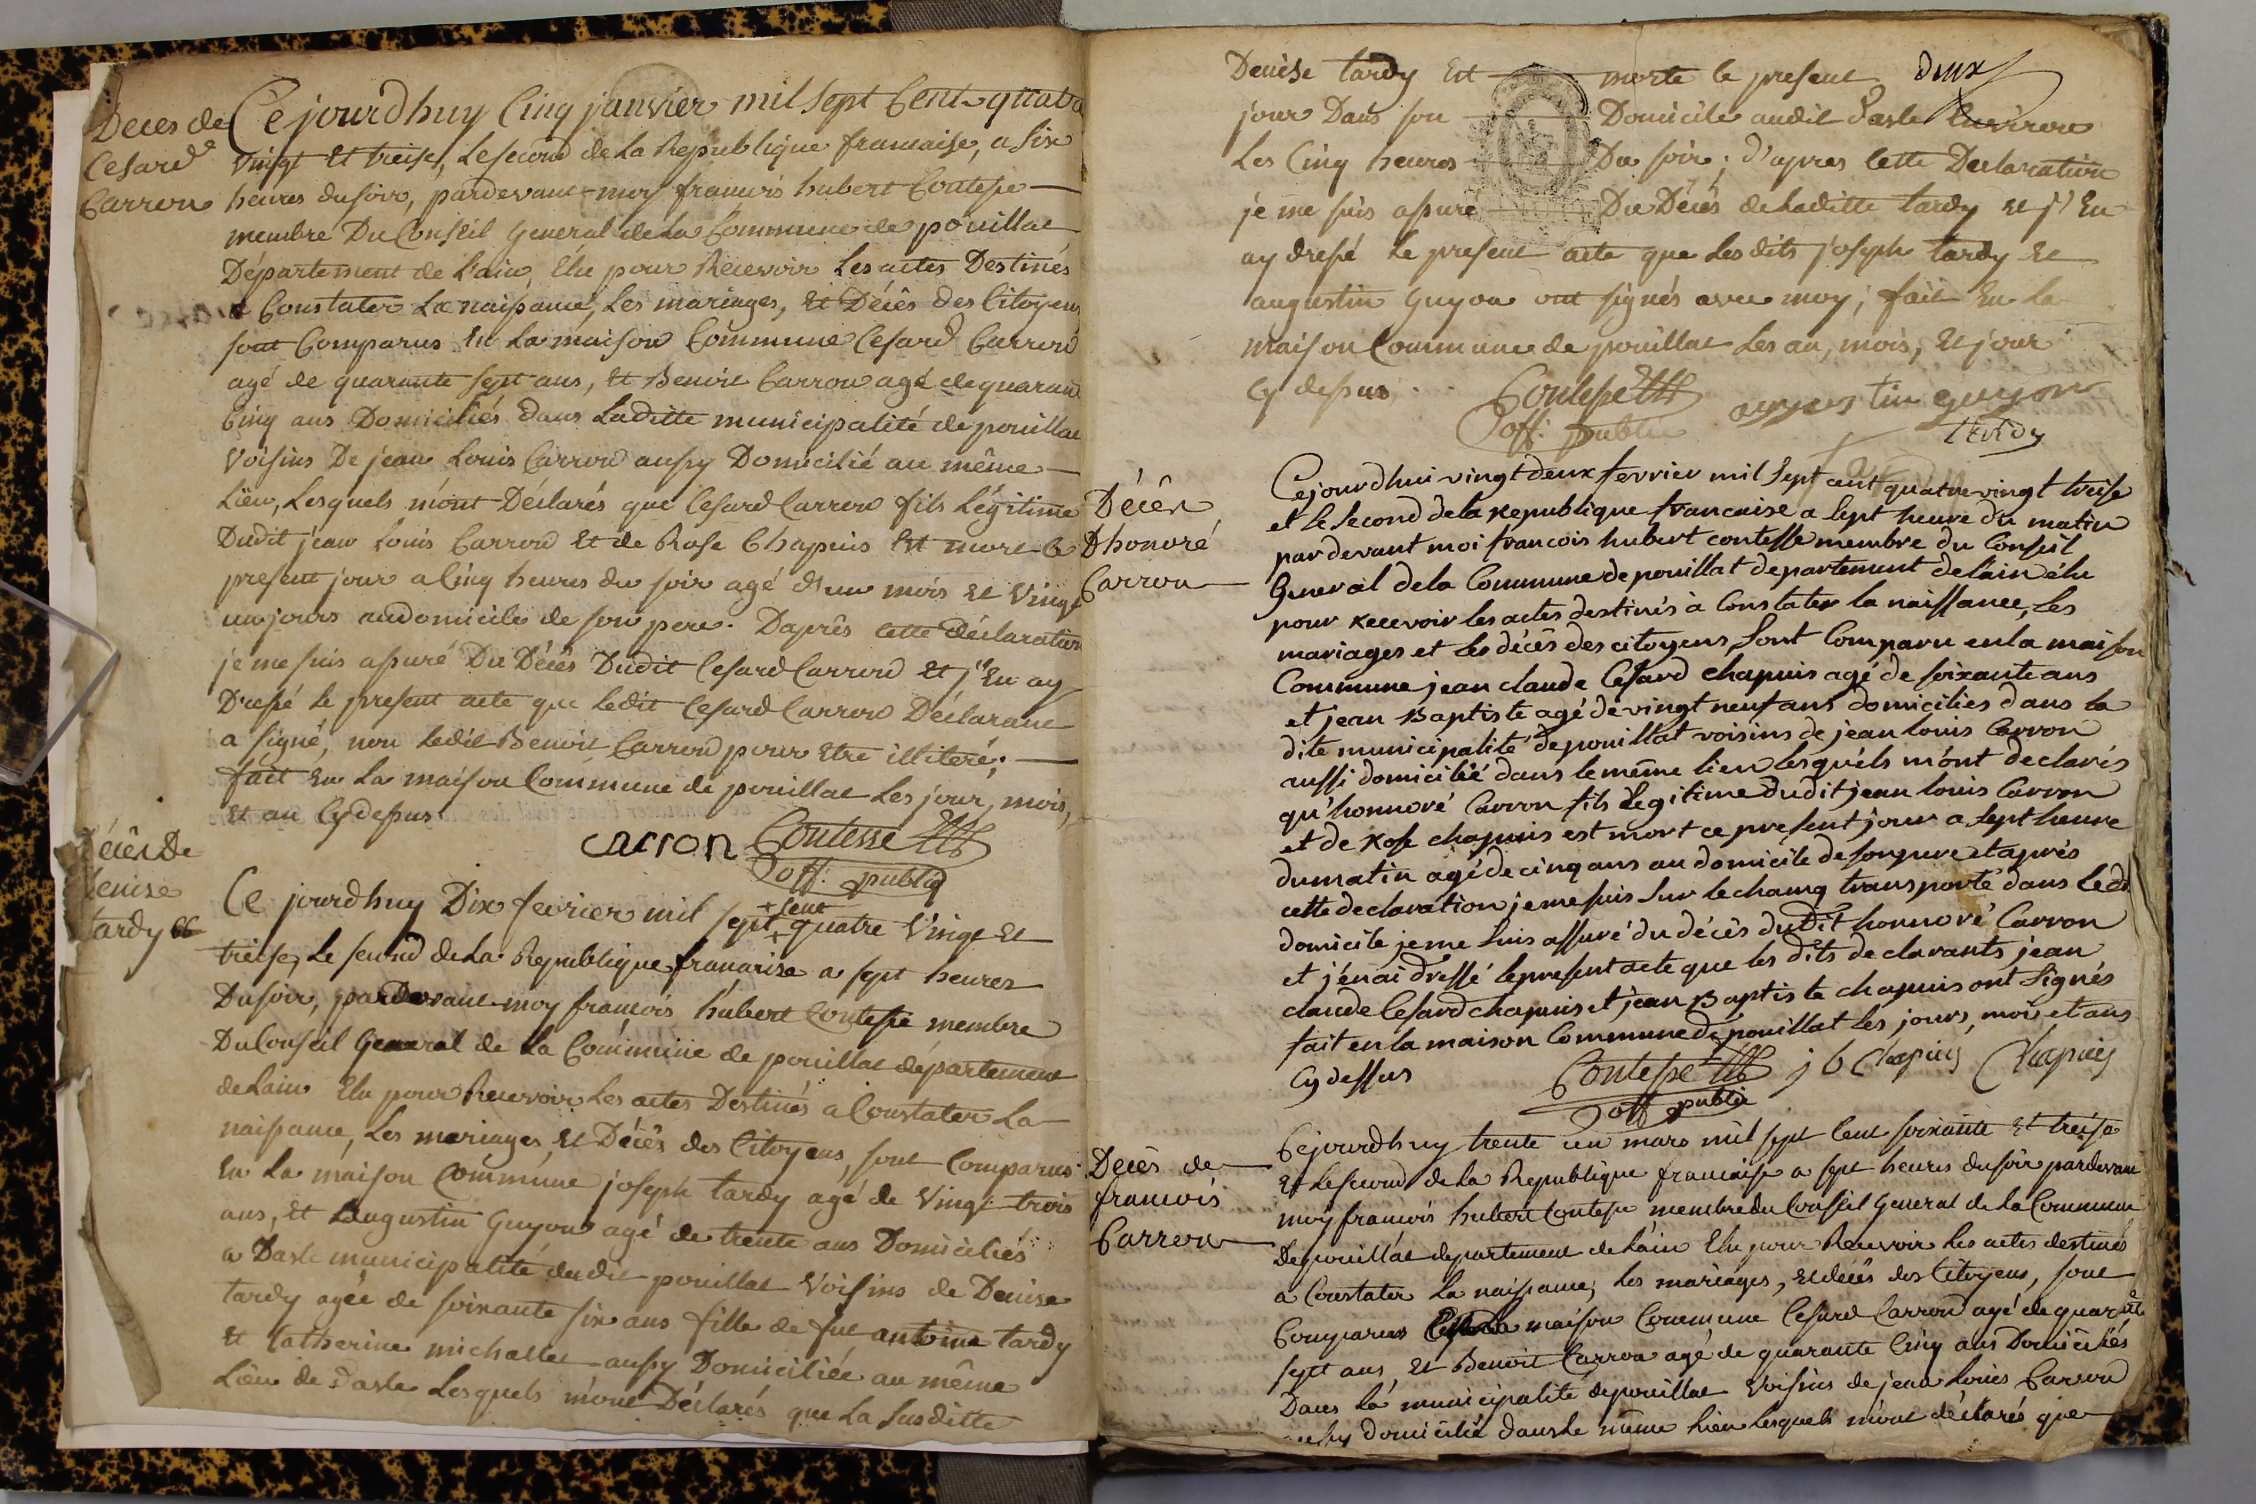 Deces de
Cesard
Carron
Cejourdhuy Cinq janvier mil sept Cent quatre
vingt et treise, Le second de La Republique francaise, a six
heures du soir, pardevant moy francois hubert Contesse
membre Du Conseil General de La Commune de pouillat
Département de L'ain, Elu pour Recevoir Les actes Destinés
a Constater La naissance, Les mariages, et Décês des Citoyens
sont Comparus En La maison Commune Cesard Carron
agé de quarante sept ans, et Benoit Carron agé de quarante
Cinq ans Domiciliés dans Laditte municipalité de pouillat
Voisins De jean Louis Carron aussy Domicilié au même
Lieu, Lesquels m'ont Déclarés que Cesard Carron fils Légitime
Dudit jean Louis Carron et de Rose Chapuis est mort Ce
present jour a Cinq heures du soir agé d'un mois et Vingt
un jours au domicile de son pere. Daprês cette déclaration
je me suis assuré Du Décês Dudit Cesard Carron et j'En ay
Dressé Le present acte que Ledit Cesard Carron Déclarant
a signé, non Ledit Benoit Carron pour Etre illiteré;
fait En La maison Commune de pouillat Les jour, mois,
et an Cydessus
carron Contesse
off. public
Décês De
denise
tardy
Ce jourdhuy Dix fevrier mil sept quatre Vingt et
+ cent
treise, Le second de La Republique francaise a sept heures
Du soir, pardevant moy francois hubert Contesse membre
Du Conseil General de La Commune de pouillat département
de Lain Elu pour Recevoir Les actes Destinés a Constater La
naissance, Les mariages, et Décês des Citoyens, sont Comparus
En La maison Commune joseph tardy agé de Vingt trois
ans, et augustin Guyon agé de trente ans Domiciliés
a Dasle municipalité dudit pouillat Voisins de Denise
tardy agée de soixante six ans fille de fut antoine tardy
et Catherine michallet aussy Domiciliée au même
Lieu de Dasle Lesquels m'ont Déclarés que La susditte
deux
Denise tardy Est morte le present
jour Dans son Domicile audit Dasle Environ
Les Cinq heures Du soir; d'apres Cette Declaration
je me suis assuré Du Décês de Laditte tardy et j'En
ay dressé Le present acte que Les dits joseph tardy et
augustin Guyon ont signés avec moy; fait En La
maison Commune de pouillat Les an, mois, et jour
Cy dessus
Contesse augustin guyon
off. public tardy
Décês
Dhonoré
Carron
Cejourdhui vingt deux fevrier mil sept cent quatre vingt treise
et le second de la Republique francaise a sept heure du matin
par devant moi francois hubert contesse membre du Conseil
General de la Commune de pouillat departement de lain élu
pour recevoir les actes destinés à Constater la naissance, les
mariages et les décês des citoyens, sont Comparu en la maison
Commune jean claude Cesard chapuis agé de soixante ans
et jean Baptiste agé de vingt neuf ans domiciliés dans la
dite municipalité de pouillat voisins de jean louis Carron
aussi domicilié dans le même lieu lesquéls m'ónt declarés
qu'honnoré Carron fils legitime dudit jean louis Carron
et de Rose chapuis est mort ce present jour a sept heure
du matin agé de cinq ans au domicile de son pere et aprés
cette declaration je me suis sur le champ transporté dans ledt
domicile je me suis assuré du décês du Dit honnoré Carron
et j'en ai dressé le present acte que les dits declarants jean
claude Cesard chapuis et jean Baptiste chapuis ont signés
fait en la maison Commune de pouillat les jours, mois et ans
Cy dessus
Contesse j b Chapuis Chapuis
off public
Decês de
francois
Carron
Cejourdhuy trente un mars mil sept Cent soixante et treise
et Le second de la Republique francaise a sept heures du soir pardevant
moy francois hubert Contesse membre du Conseil General de La Commune
De pouillat departement de L'ain Elu pour Recevoir Les actes destinés
a Constater La naissance, les mariages, et décês des Citoyens, sont
Comparus maison Commune Cesard Carron agé de quarante
sept ans, et Benoit Carron agé de quarante Cinq ans Domiciliés
Dans La municipalité de pouillat Voisins de jean Louis Carron
aussy domicilié dans Le même Lieu Lesquels m'ont déclarés que